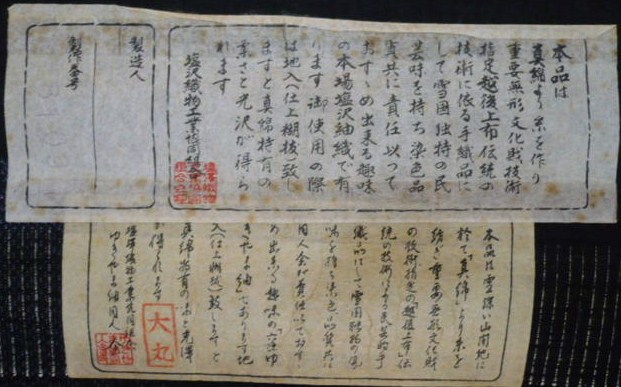 本品は
真綿より糸を作り
重要無形文化財技術
指定越後上布伝統の
技術に依る手織品に
して雪国独特の民
芸味を持ち染色品
質共に責任以つて
おすゝめ出来る趣味
の本場塩沢紬織で有
ります御使用の際
は地入(仕上糊抜)致し
ますと真綿特有の
重さと光沢が得ら
れます
塩沢織物工業協同組合
製造人
製作番号
本品は雪深い山間地に
於て「真綿」より糸を
重要無形文化財
の技術指定の「越後上布」伝
統の技術による民芸的手
織品にして雪国独特の
味を持ち染色品質共に
同人会が責任以ておす
め出来る趣味の
きやま紬」であります地
入(仕上糊抜)致しますと
真綿特有の と光澤
が得られます
塩澤織物工業協同組合
ゆきやま紬同人会
大丸